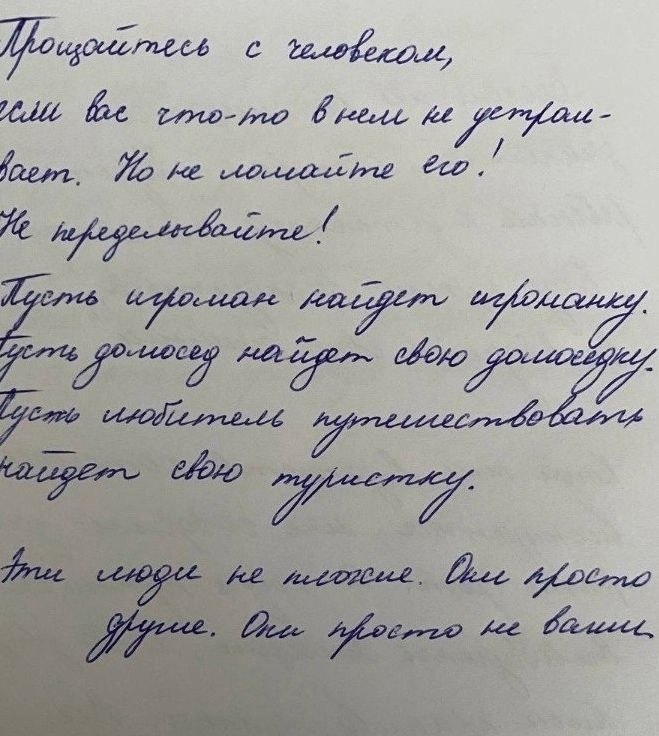 Прощайтесь с человеком,
если вас что-то в нем не устраи-
вает. Но не ломайте его!
Не переделывайте!
Пусть игроман найдет игроманку.
Пусть домосед найдет свою домоседку.
Пусть любитель путешествовать
найдет свою туристку.
Эти люди не плохие. Они просто
другие. Они просто не ваши